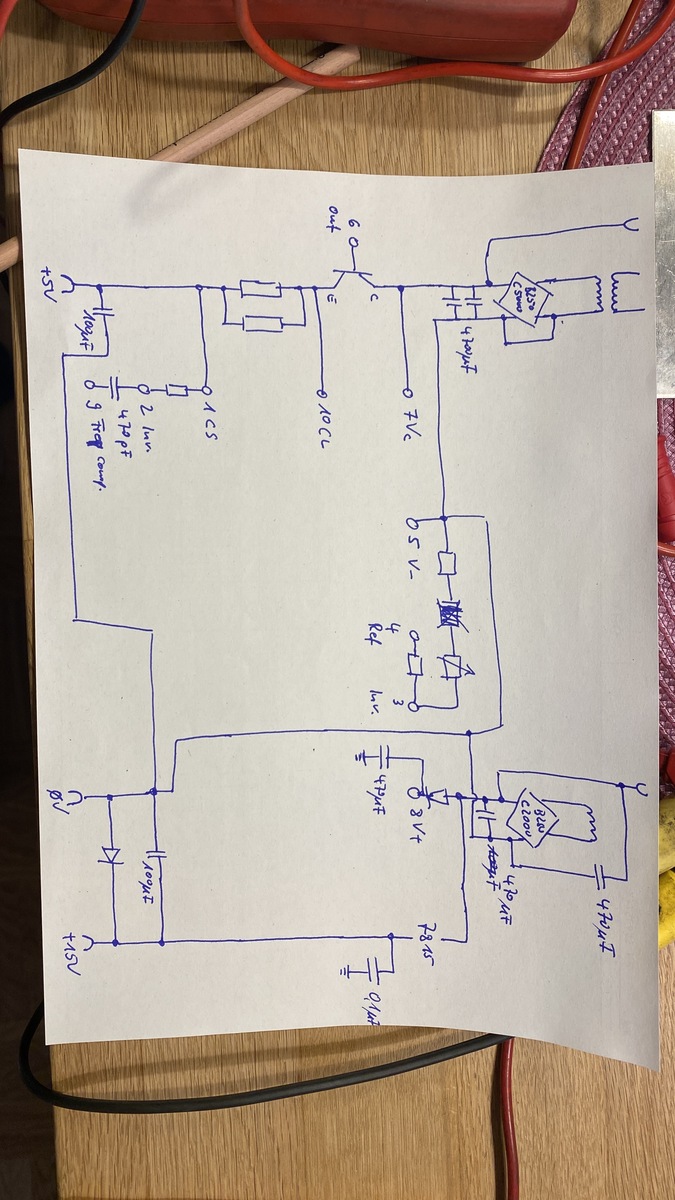 B250
C5000
470µF
7 Vc
C
E
6
out
10 CL
1 CS
2 Inv.
470 pF
9 Freq comp.
100µF
+5V
5 V-
4
Ref
3
Inv.
C2000
470µF
470µF
8 V+
47µF
7815
0,1µF
100µF
0V
+15V